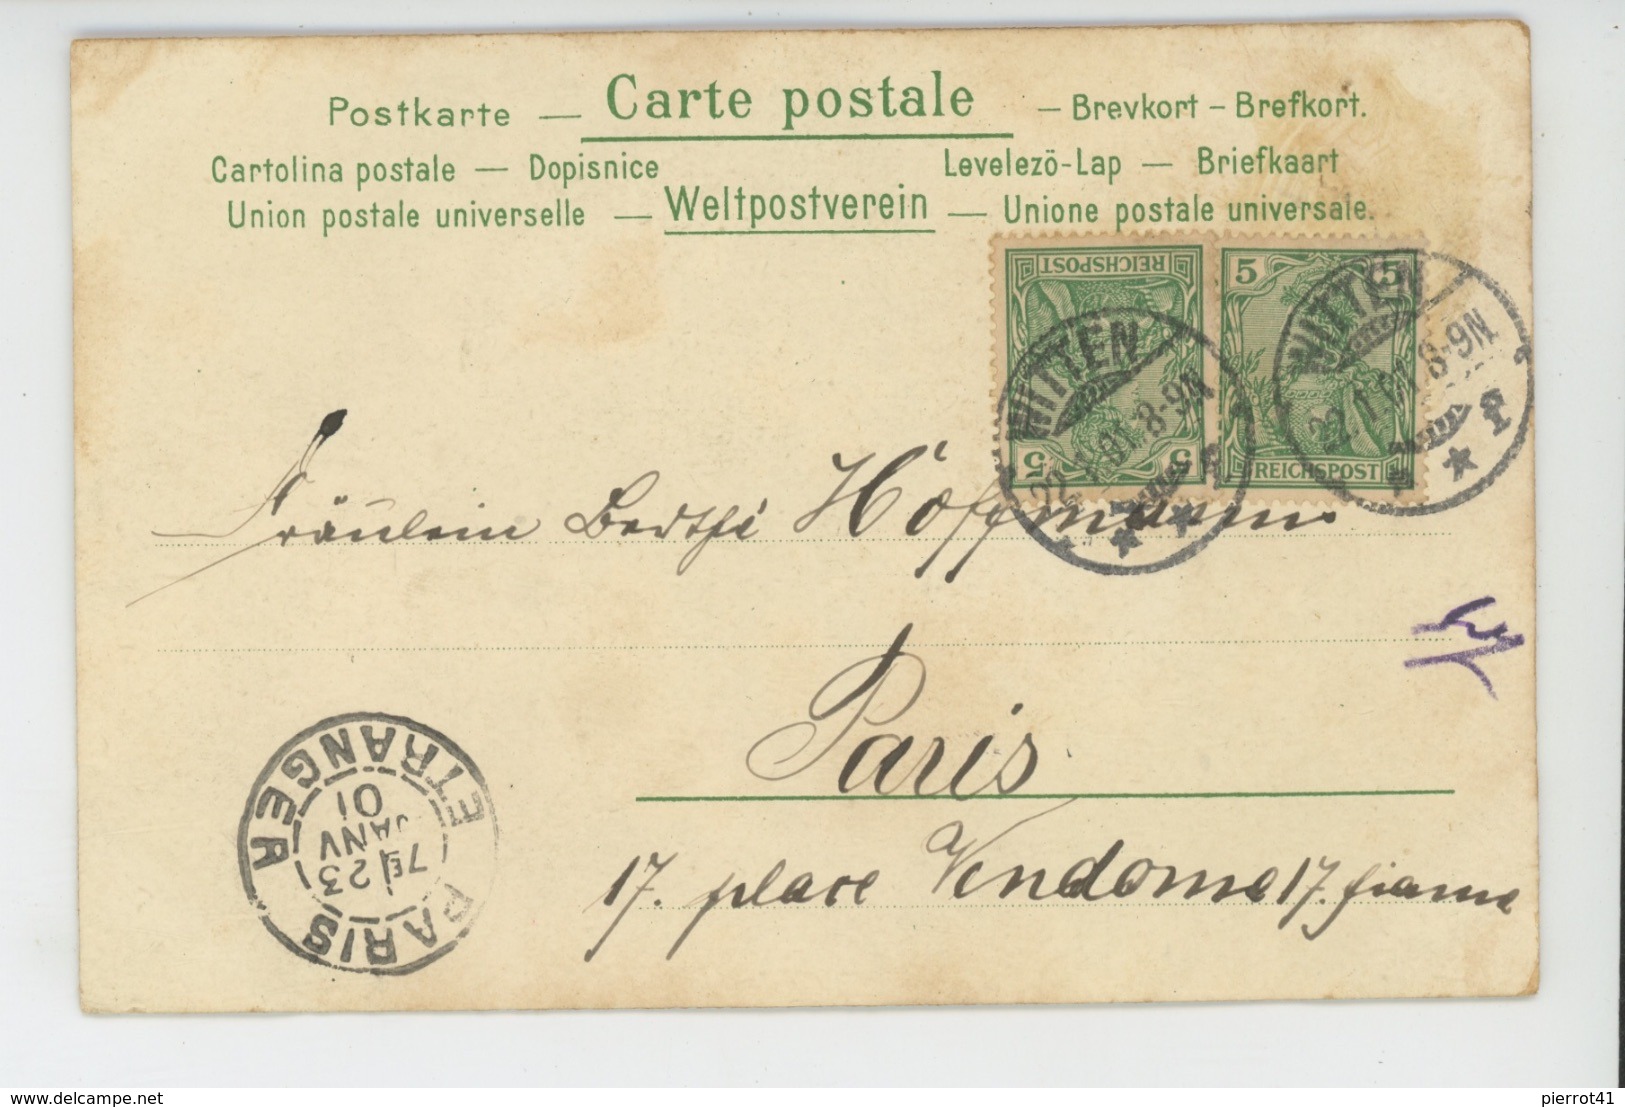 Postkarte — Carte postale — Brevkort – Brefkort.
Cartolina postale — Dopisnice Levelezö-Lap — Briefkaart
Union postale universelle — Weltpostverein — Unione postale universale.
REICHSPOST
5 5
5 5
REICHSPOST
WITTEN
22.1.01.8-9N
WITTEN
22.1.01.8-9N
Fräulein Hoffmann
Paris
17. place Vendome 17.
PARIS ETRANGER
7E 23
JANV
01
delcampe.net
pierrot41